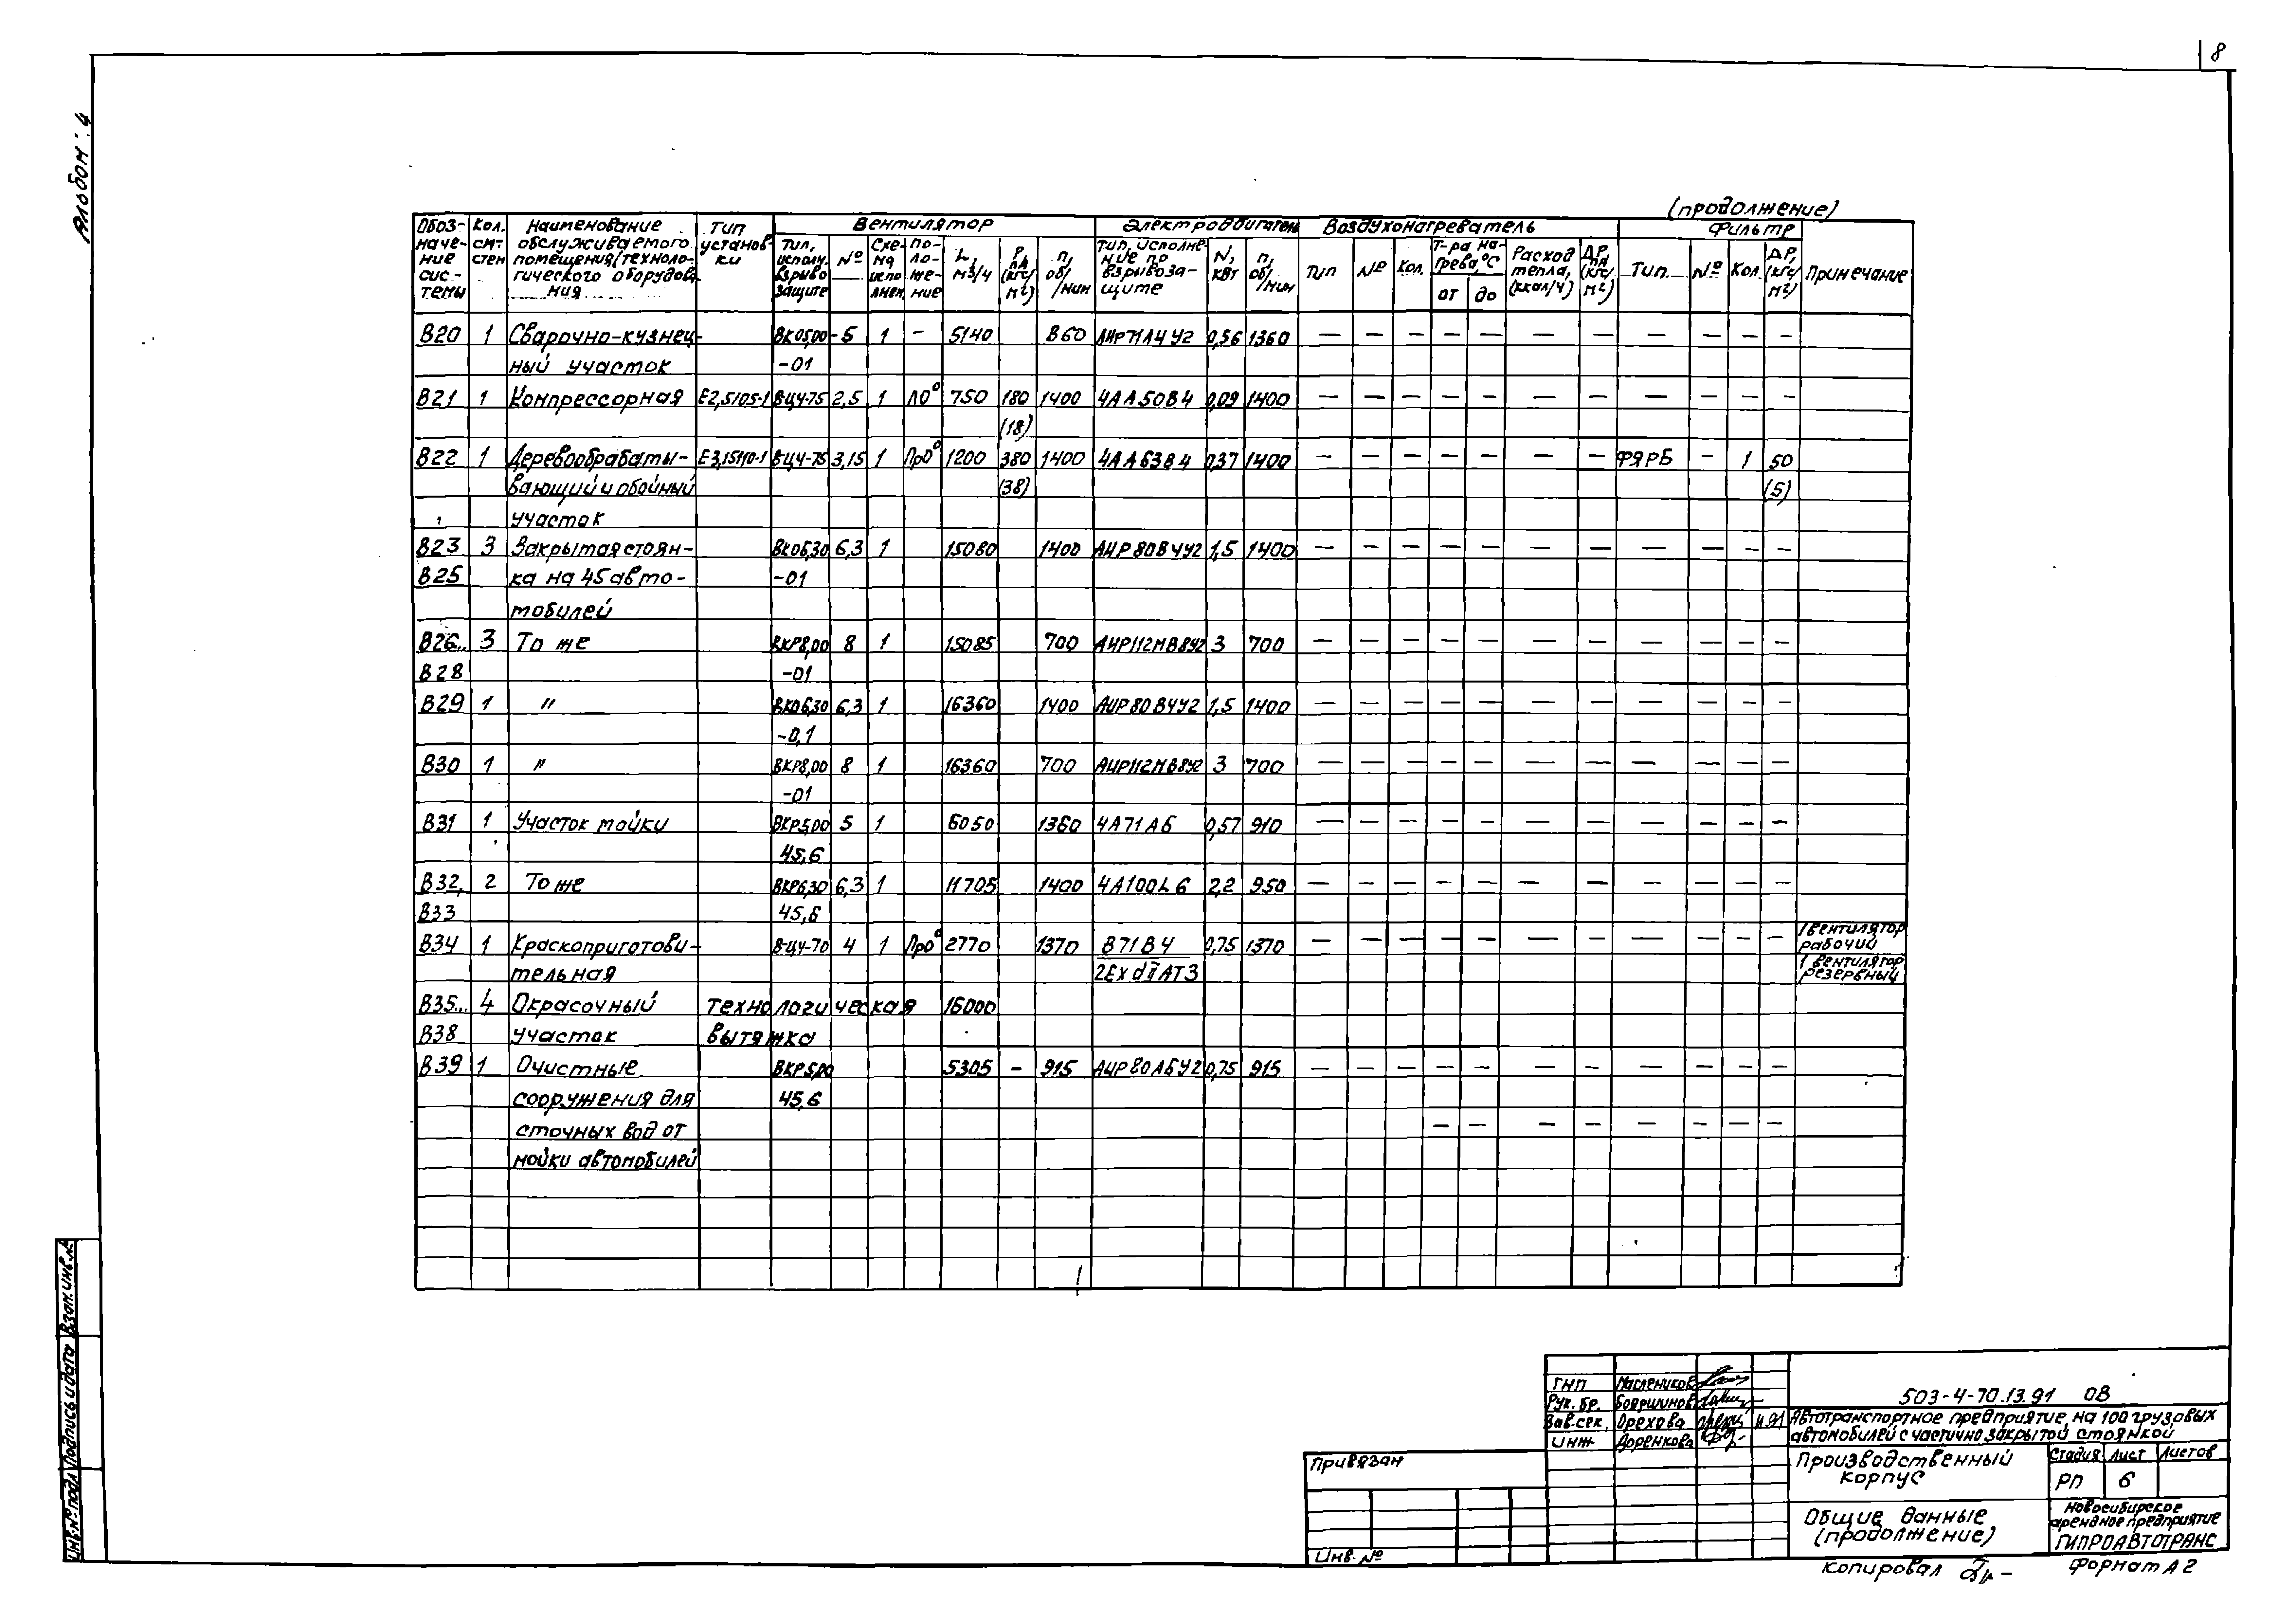 8
Альбом: 4
(продолжение)
Обоз-наче-ние сис-темы | Кол. сист-стен | Наименование обслуживаемого помещения/техноло-гического оборудова ния | Тип установ-ки | Вентилятор | Электродвигатель | Воздухонагреватель | Фильтр | Примечание
Тип, исполн. взрыво защите | № | Схе-ма испо лнен. | По-ло-же-ние | L, м3/ч | Р, ПА (кгс/м²) | п, об/мин | Тип, исполне-ние по взрывоза-щите | N, кВт | п, об/мин | Тип | № | Кол. | Т-ра на-грева, °С от до | Расход тепла, (ккал/ч) | ΔР, ПА (кгс/м²) | Тип | № | Кол. | ΔР, (кгс/м²)
В20 1 Сварочно-кузнец- ВКО5,00- 5 1 – 5140 860 АИР71А4У2 0,56 1360 — — — — — — — — — — —
ный участок -01
В21 1 Компрессорная Е2,5105-1 В-Ц4-75 2,5 1 Л0° 750 180 1400 4АА50В4 0,09 1400 — — — — — — — — — — —
(18)
В22 1 Деревообрабаты- Е3,15110-1 В-Ц4-75 3,15 1 Пр0° 1200 380 1400 4АА63В4 0,37 1400 — — — — — — — ФЯРБ – 1 50
вающий и обойный (38) (5)
участок
В23 3 Закрытая стоян- ВКО6,30 6,3 1 15080 1400 АИР80В4У2 1,5 1400 — — — — — — — — — — —
В25 ка на 45 авто- -01
мобилей
В26... 3 То же ВКР8,00 8 1 15085 700 АИР112МВ8У2 3 700 — — — — — — — — — — —
В28 -01
В29 1 " ВКО6,30 6,3 1 16360 1400 АИР80В4У2 1,5 1400 — — — — — — — — — — —
-0,1
В30 1 " ВКР8,00 8 1 16360 700 АИР112МВ8У2 3 700 — — — — — — — — — — —
-01
В31 1 Участок мойки ВКР5,00 5 1 6050 1360 4А71А6 0,57 910 — — — — — — — — — — —
45,6
В32, 2 То же ВКР6,30 6,3 1 11705 1400 4А100L6 2,2 950 — — — — — — — — — — —
В33 45,6
В34 1 Краскоприготови- В-Ц4-70 4 1 Пр0° 2770 1370 В71В4 0,75 1370 — — — — — — — — — — — 1 вентилятор рабочий
тельная 2ЕхdⅡАТ3 1 вентилятор резервный
В35... 4 Окрасочный технологическая 16000
В38 участок вытяжка
В39 1 Очистные ВКР5,00 5305 – 915 АИР80А6У2 0,75 915 — — — — — — — — — — —
сооружения для 45,6
сточных вод от — — — — — — — —
мойки автомобилей
ГИП Маслеников
Рук. бр. Бояршинов
Зав.сек. Орехова 11.91
инж Доренкова
503-4-70.13.91 ОВ
Автотранспортное предприятие на 100 грузовых
автомобилей с частично закрытой стоянкой
Производственный
корпус
Стадия Лист Листов
РП 6
Общие данные
(продолжение)
Новосибирское
арендное предприятие
ГИПРОАВТОТРАНС
Привязан
Инв. №
Копировал
Формат А2
Взам. инв. №
Подпись и дата
Инв. № подл